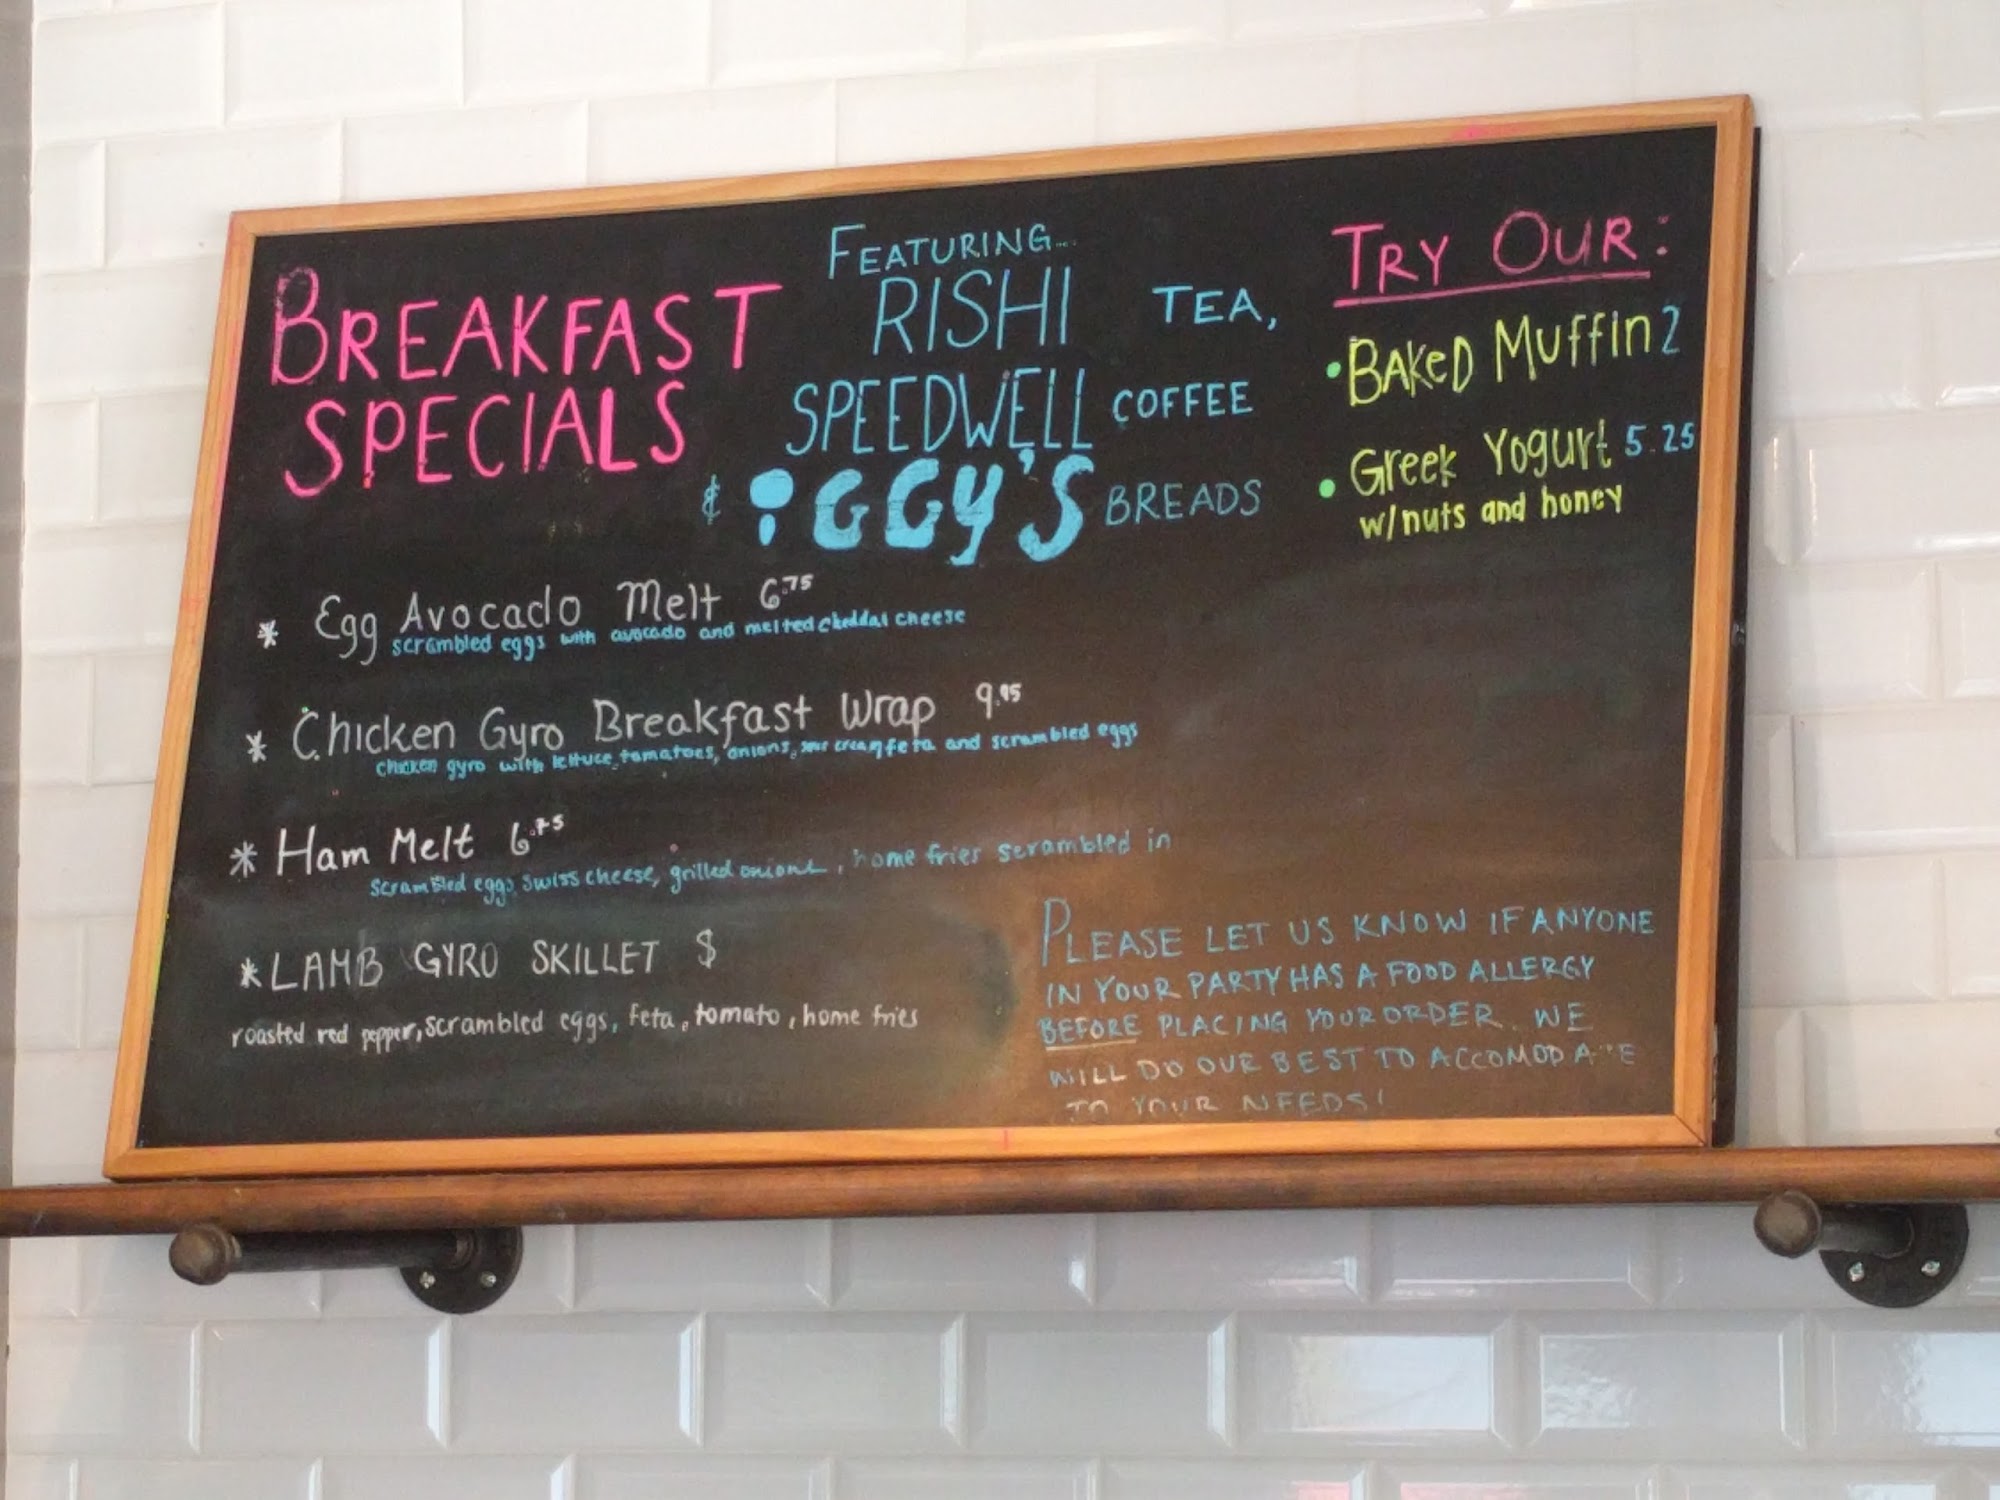 BREAKFAST
SPECIALS
FEATURING...
RISHI TEA,
SPEEDWELL COFFEE
& iGGY'S BREADS
TRY OUR:
• BAKeD Muffin 2
• Greek Yogurt 5.25
w/nuts and honey
* Egg Avocado Melt 6.75
scrambled eggs with avocado and melted cheddar cheese
* Chicken Gyro Breakfast Wrap 9.95
chicken gyro with lettuce, tomatoes, onions, sour cream, feta and scrambled eggs
* Ham Melt 6.75
scrambled eggs, swiss cheese, grilled onions, home fries scrambled in
* LAMB GYRO SKILLET $
roasted red pepper, scrambled eggs, feta, tomato, home fries
PLEASE LET US KNOW IF ANYONE
IN YOUR PARTY HAS A FOOD ALLERGY
BEFORE PLACING YOUR ORDER. WE
WILL DO OUR BEST TO ACCOMODATE
TO YOUR NEEDS!